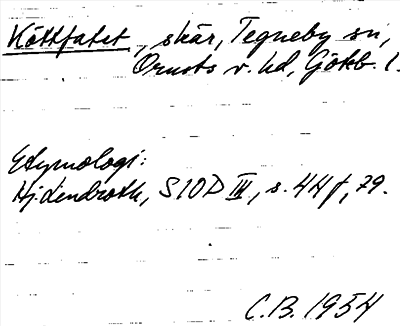 Köttfatet, skär, Tegneby sn,
Orusts v. hd, Götb. l.
Etymologi:
Hj. Lindroth, SIOD III, s. 44 f, 79.
C.B. 1954